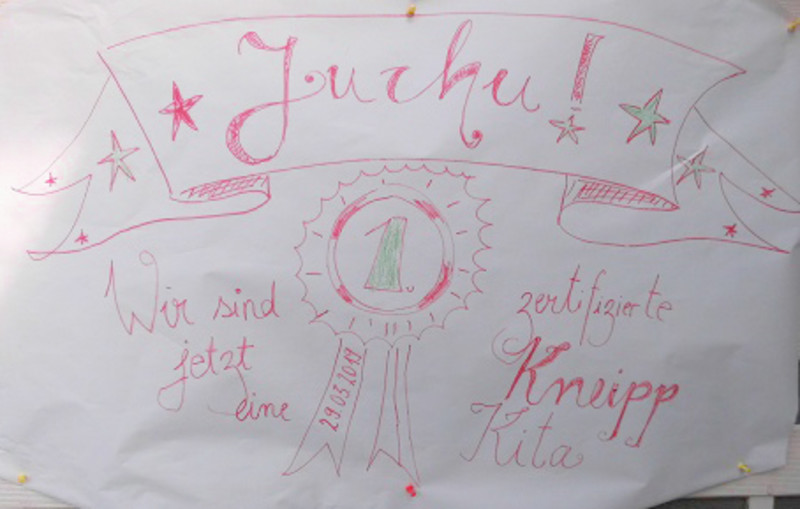 Juchu!
1.
Wir sind
jetzt
eine
29.03.2019
zertifizierte
Kneipp
Kita